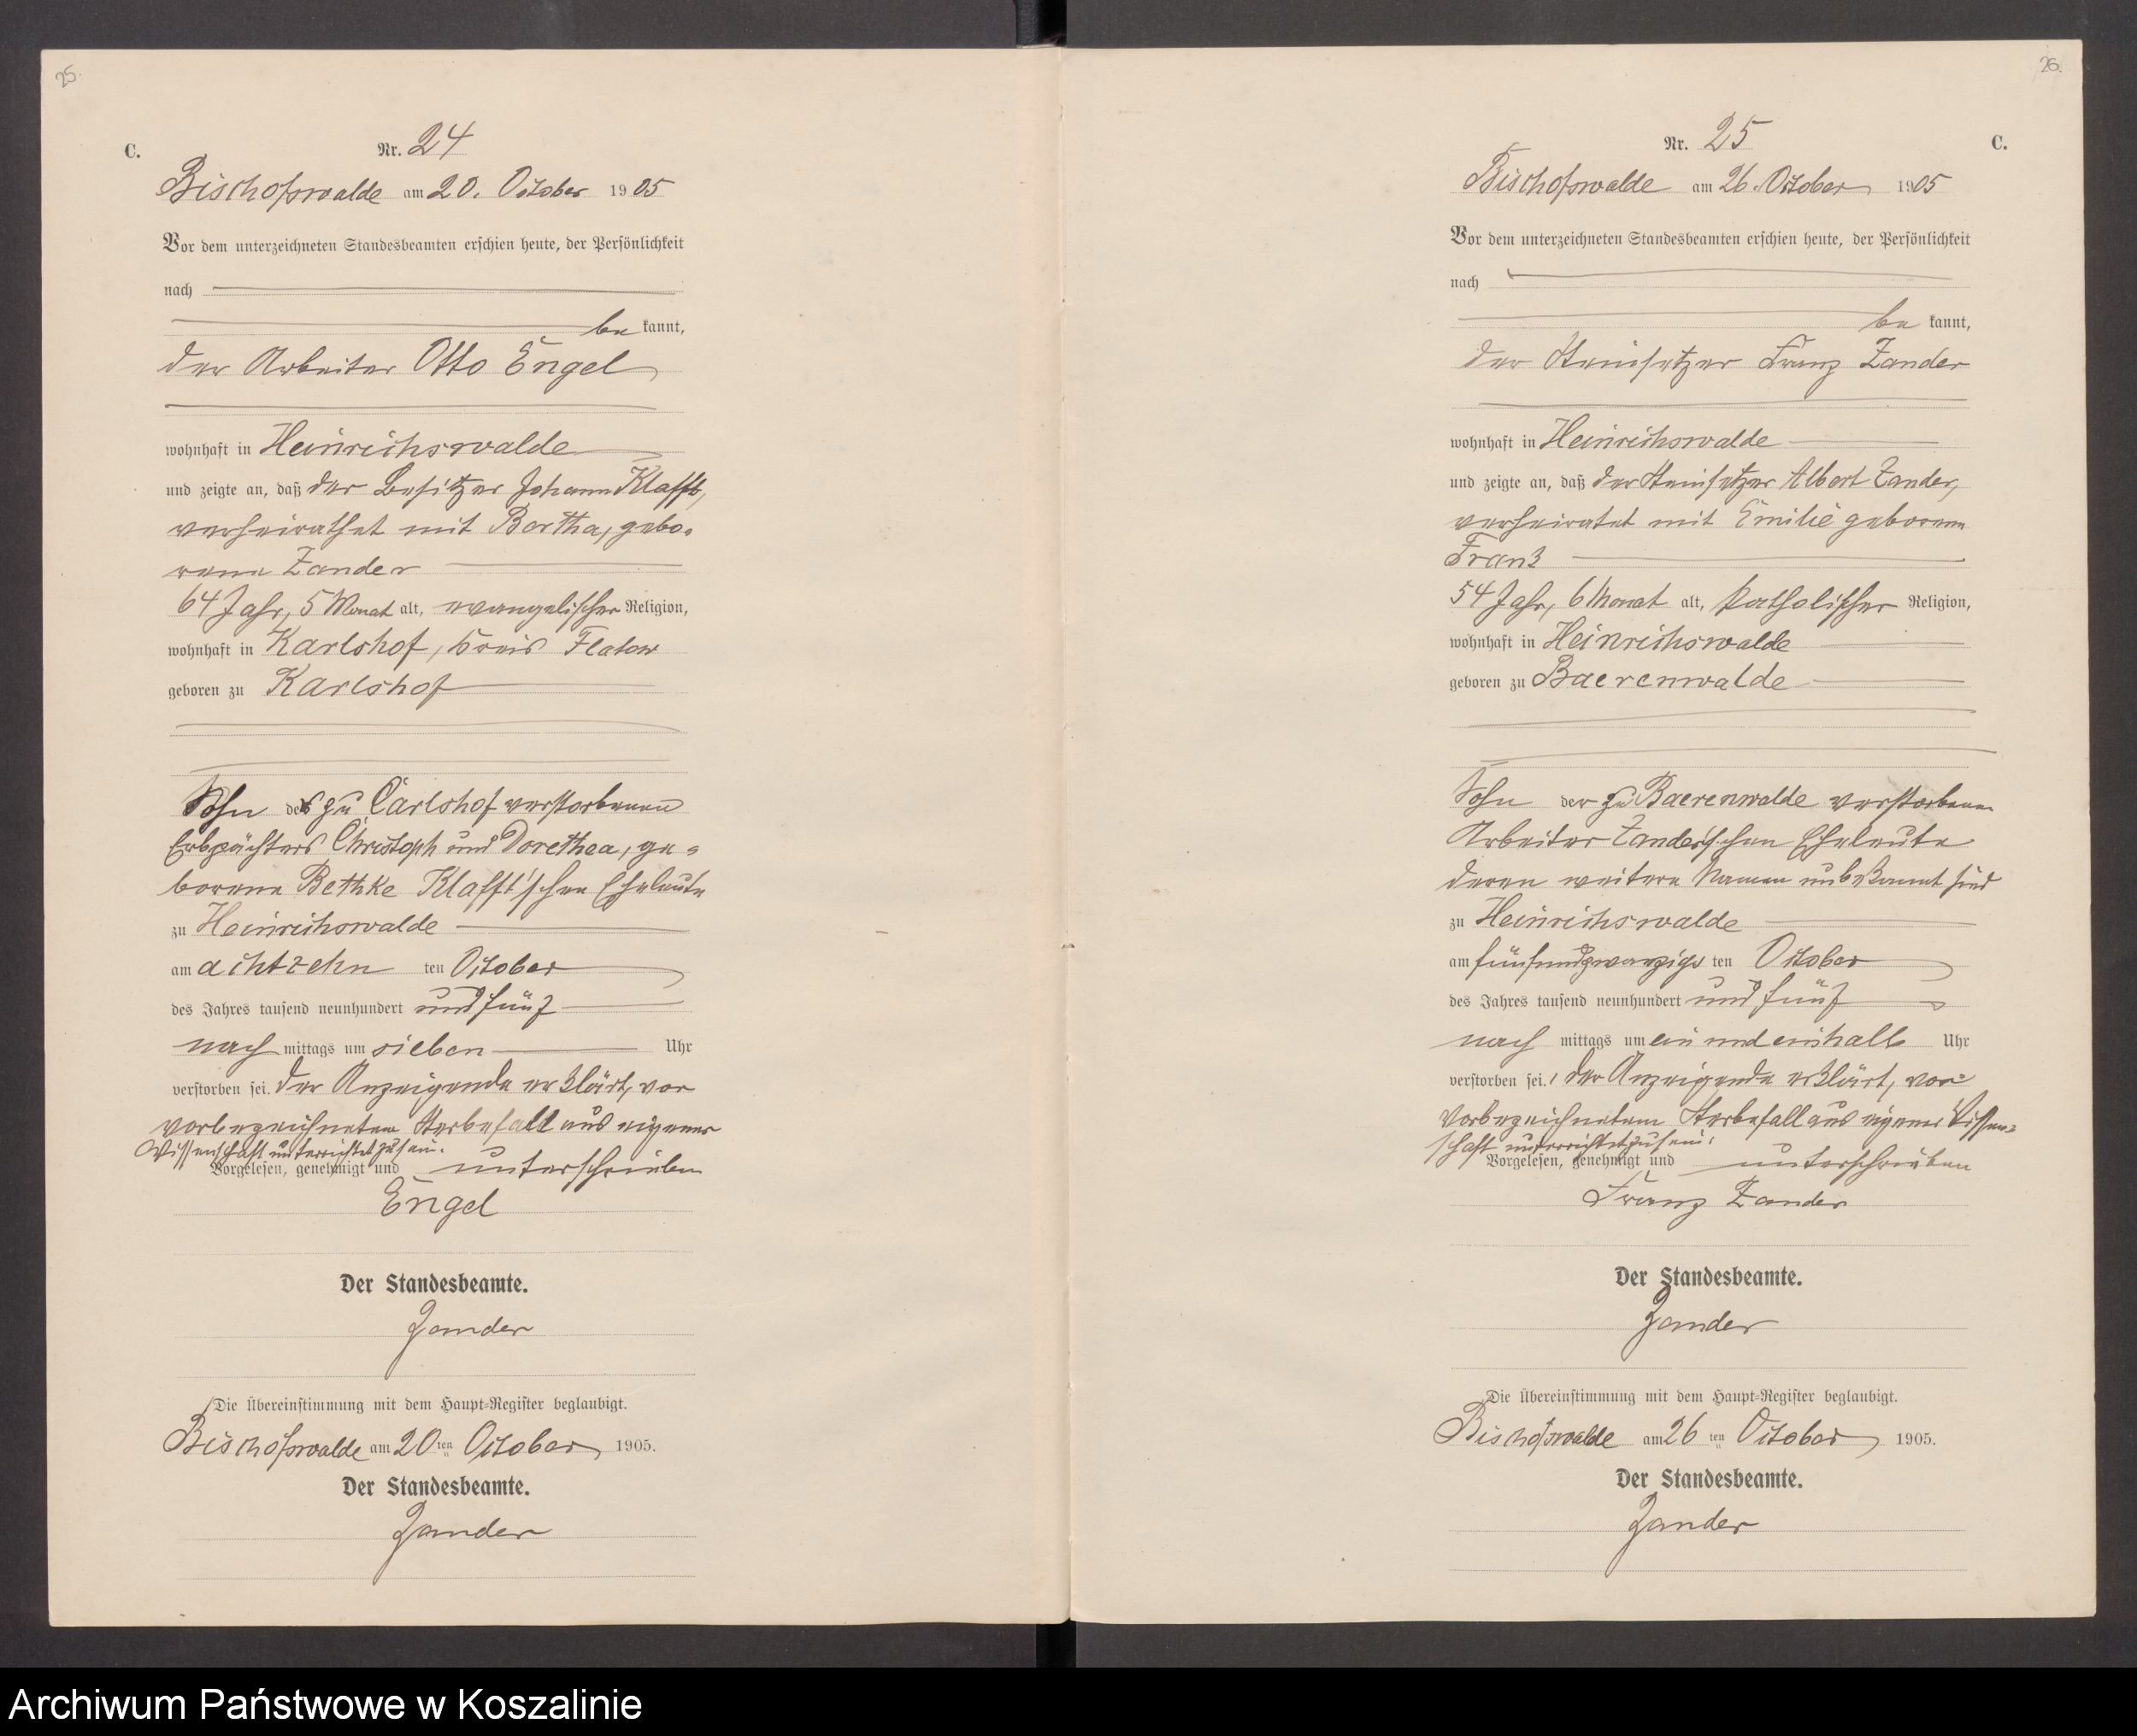 25.
C.
Nr. 24
Bischofswalde am 20. October 1905
Vor dem unterzeichneten Standesbeamten erschien heute, der Persönlichkeit
nach
be kannt,
der Arbeiter Otto Engel
wohnhaft in Heinrichswalde
und zeigte an, daß der Besitzer Johann Klafft,
verheirathet mit Bertha, gebo-
rene Zander
64 Jahr, 5 Monat alt, evangelischer Religion,
wohnhaft in Karlshof, Kreis Flatow
geboren zu Karlshof
Sohn des zu Carlshof verstorbenen
Erbpächters Christoph und Dorethea, ge-
borene Bethke Klafft'schen Eheleute
zu Heinrichswalde
am achtzehn ten October
des Jahres tausend neunhundert und fünf
nach mittags um sieben Uhr
verstorben sei. Der Anzeigende erklärt, von
vorbezeichneten Sterbefall aus eigener
Wissenschaft unterrichtet zu sein.
Vorgelesen, genehmigt und unterschrieben
Engel
Der Standesbeamte.
Zander
Die Übereinstimmung mit dem Haupt-Register beglaubigt.
Bischofswalde am 20ten October 1905.
Der Standesbeamte.
Zander
26.
Nr. 25
C.
Bischofswalde am 26. October 1905
Vor dem unterzeichneten Standesbeamten erschien heute, der Persönlichkeit
nach
be kannt,
der Steinsetzer Franz Zander
wohnhaft in Heinrichswalde
und zeigte an, daß der Steinsetzer Albert Zander,
verheiratet mit Emilie geborene
Franz
54 Jahr, 6 Monat alt, katholischer Religion,
wohnhaft in Heinrichswalde
geboren zu Baerenwalde
Sohn der zu Baerenwalde verstorbenen
Arbeiter Zander'schen Eheleute
deren weitere Namen unbekannt sind
zu Heinrichswalde
am fünfundzwanzigs ten October
des Jahres tausend neunhundert und fünf
nach mittags um ein und einhalb Uhr
verstorben sei. Der Anzeigende erklärt, von
vorbezeichnetem Sterbefall aus eigener Wissen-
schaft unterrichtet zu sein.
Vorgelesen, genehmigt und unterschrieben
Franz Zander
Der Standesbeamte.
Zander
Die Übereinstimmung mit dem Haupt-Register beglaubigt.
Bischofswalde am 26 ten October 1905.
Der Standesbeamte.
Zander
Archiwum Państwowe w Koszalinie